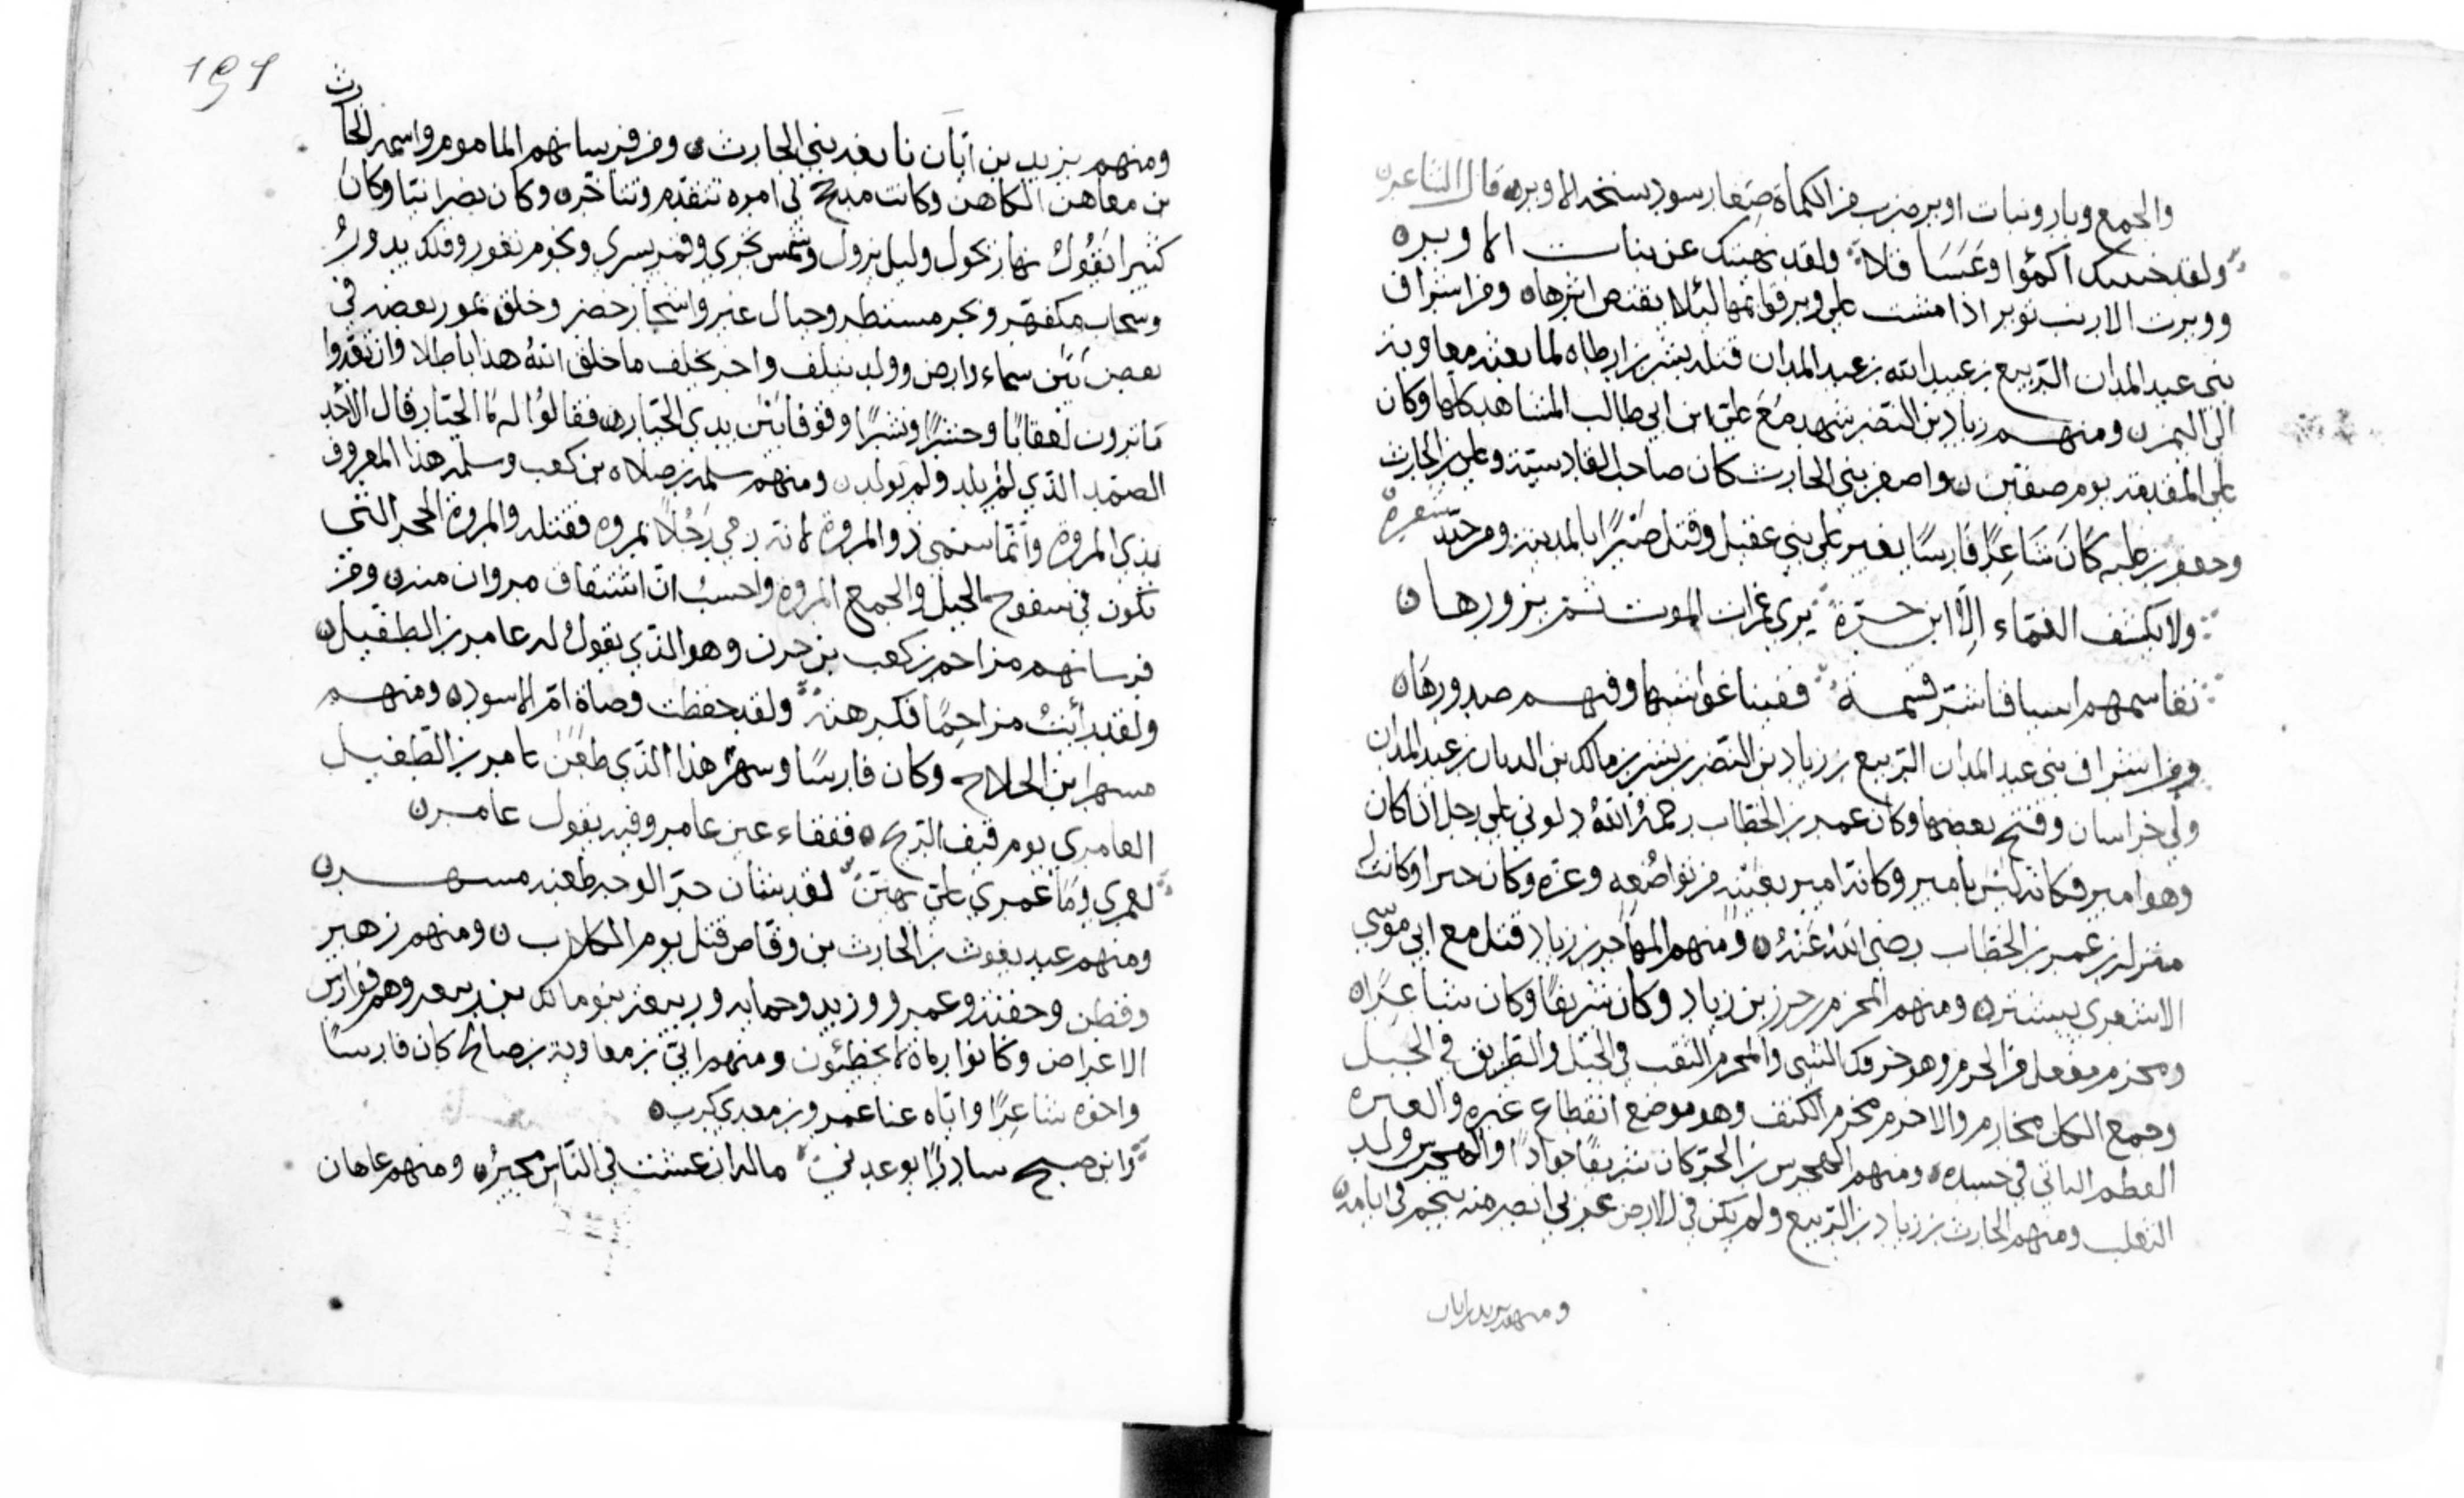 والجمع وبار وبنات اوبر ضرب من الكمأة صغار سود بسنخه الاوبره قال الشاعرن
ولقد جنيتك اكمؤا وعساقلا ولقد نهيتك عن بنات الاوبره
ووبرت الارنب توبر اذا مشت على وبر قوائمها لئلا يقتص اثرها ومن اشراف
بني عبد المدان الربيع بن عبيد الله بن عبد المدان قتله بشر بن ارطاه لما بعثه معاوية
الى اليمن ومنهم زياد بن النضر شهد مع علي ابن ابي طالب المشاهد كلها وكان
على المقدمه يوم صفين واصفر بني الحارث كان صاحب القادسية وعلي بن الحارث
وجعفر بن علبه كان شاعرا فارسا يغير على بني عقيل وقتل صبرا بالمدينة ومن جيد شعره
ولا يكشف الغماء الا ابن حرة يرى غمرات الموت ثم يزورها
نقاسمهم اسيافنا شر قسمة ففينا غواشيها وفيهم صدورها
ومن اشراف بني عبد المدان الربيع بن زياد بن النضر بن بشر بن مالك بن الديان بن عبد المدان
ولي خراسان وفتح بعضها وكان عمر بن الخطاب رحمه الله دلوني على رجل اذا كان
وهو امير فكانه ليس بامير وكانه امير بعينه من تواضعه وعزه وكان خيرا وكانت له
منزلة من عمر بن الخطاب رضي الله عنه ومنهم المهاجر بن زياد قتل مع ابي موسى
الاشعري بتستر ومنهم المخرم بن حزن بن زياد وكان شريفا وكان شاعرا
ومخرم مفعل من الخرم وهو خرقك الشي والمخرم النقب في الجبل والطريق في الجبل
وجمع الكل مخارم والاخرم مخرم الكتف وهو موضع انقطاع عيره والعيره
العظم الناتي في جسده ومنهم الهجرس بن الحر كان شريفا جوادا والهجرس ولد
الثعلب ومنهم الحارث بن زياد بن الربيع ولم يكن في الارض عربي ابصر منه بنجم في ايامه
ومنهم يزيد بن ابان
191
ومنهم يزيد بن ابان نابغه بني الحارث ومن فرسانهم المامور واسمه الحارث
بن معاهن الكاهن وكانت مذحج في امره تتقدم وتتاخر وكان نصرانيا وكان
كثيرا يقول نهار يحول وليل يزول وشمس تجري وقمر يسري ونجوم تغور وفلك يدور
وسحاب مكفهر وبحر مستطر وجبال غبر واشجار خضر وخلق يمور بعضه في
بعض بين سماء وارض وولد يتلف واخر يخلف ما خلق الله هذا باطلا وان بعد
ما ترون لعقابا وحشرا ونشرا ووقوفا بين يدي الجبار فقالوا له ما الجبار قال الاحد
الصمد الذي لم يلد ولم يولد ومنهم سلمه بن صلاه بن كعب وسلمه هذا المعروف
بذي المروه وانما سمي ذو المروة لانه رمى رجلا بمروه فقتله والمروة الحجر التي
تكون في سفوح الجبل والجمع المروه واحسب ان اشتقاق مروان منه ومن
فرسانهم مزاحم بن كعب بن حزن وهو الذي يقول له عامر بن الطفيل
ولقد رأيت مزاحما فكرهته ولقد حفظت وصاة ام الاسود ومنهم
مسهر ابن الحلاج وكان فارسا ومسهر هذا الذي طعن عامر بن الطفيل
العامري يوم فيف الريح ففقاء عين عامر وفيه يقول عامر
لعمري وما عمري علي بهين لقد شان حر الوجه طعنه مسهر
ومنهم عبد يغوث بن الحارث بن وقاص قتل يوم الكلاب ومنهم زهير
وقطن وجفنة وعمرو وزيد وحمايه وربيعه بنو مالك بن ربيعه وهم فوارس
الاغراض وكانوا رماة لا يخطئون ومنهم ابي بن معاوية بن صبح كان فارسا
واخوه شاعرا واياه عنا عمرو بن معدي كرب
وابن صبح سادرا يوعدني ماله ان عشت في الناس مجير ومنهم عاهان